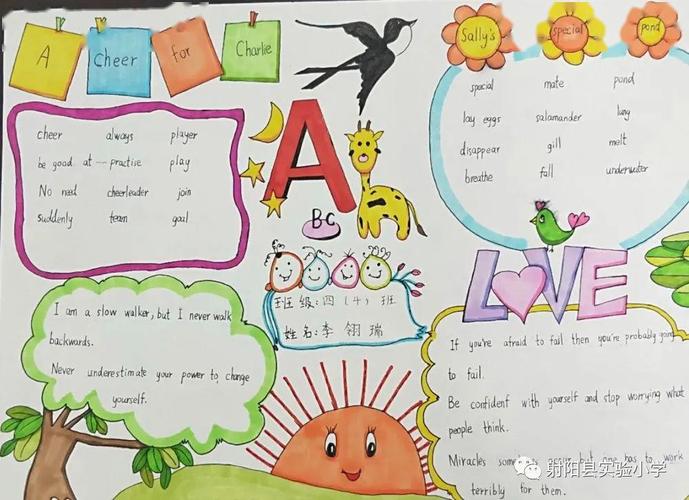 A Cheer for Charlie
cheer always player
be good at — practise play
No need cheerleader join
suddenly team goal
I am a slow walker, but I never walk
backwards.
Never underestimate your power to change
yourself.
A
BC
班级:四(4)班
姓名:李翎瑞
Sally's special pond
special mate pond
lay eggs salamander lung
disappear gill melt
breathe fall underwater
LOVE
If you're afraid to fail then you're probably
to fail.
Be confident with yourself and stop worrying what
people think.
Miracles occur but one has to work
terribly for them.
射阳县实验小学